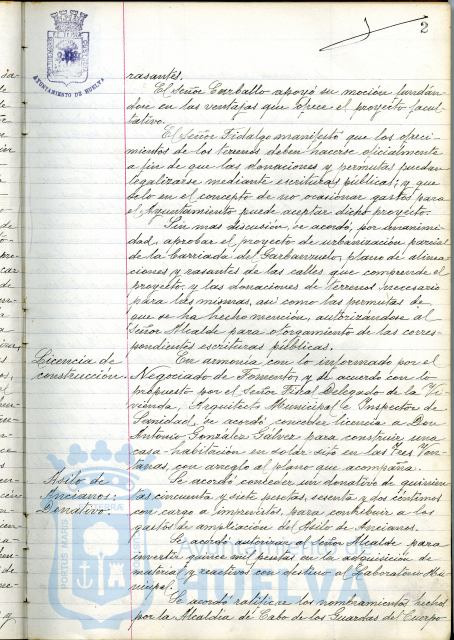 2
AYUNTAMIENTO DE HUELVA
rasantes.
El Señor Carballo apoyó su moción fundán-
dose en las ventajas que ofrece el proyecto facul-
tativo.
El Señor Fidalgo manifestó que los ofreci-
mientos de los terrenos deben hacerse oficialmente
a fin de que las donaciones y permutas puedan
legalizarse mediante escrituras públicas; y que
solo en el concepto de no ocasionar gastos para
el Ayuntamiento puede aceptar dicho proyecto.
Sin mas discusión, se acordó, por unanimi-
dad, aprobar el proyecto de urbanización parcial
de la Barriada del Garbanzuelo, plano de alinea-
ciones y rasantes de las calles que comprende el
proyecto y las donaciones de terrenos necesario
para las mismas, así como las permutas de
que se ha hecho mención, autorizándose al
Señor Alcalde para otorgamiento de las corres-
pondientes escrituras públicas.
Licencia de
construcción.
En armonía con lo informado por el
Negociado de Fomento, y de acuerdo con lo
propuesto por el Señor Fiscal Delegado de la Vi-
vienda, Arquitecto Municipal e Inspector de
Sanidad, se acordó conceder licencia a Don
Antonio González Gálvez para construir una
casa-habitación en solar sito en las Tres Ven-
tanas, con arreglo al plano que acompaña.
Asilo de
Ancianos:
Donativo.
Se acordó conceder un donativo de quinien-
tas cincuenta y siete pesetas, sesenta y dos céntimos
con cargo a imprevistos, para contribuir a los
gastos de ampliación del Asilo de Ancianos.
Se acordó autorizar al Señor Alcalde para
invertir quince mil pesetas en la adquisición de
material y reactivos con destino al Laboratorio Mu-
nicipal.
Se acordó ratificar los nombramientos hechos
por la Alcaldía de Cabo de los Guardas del Cuerpo
PORTUS MARIS
HUELVA